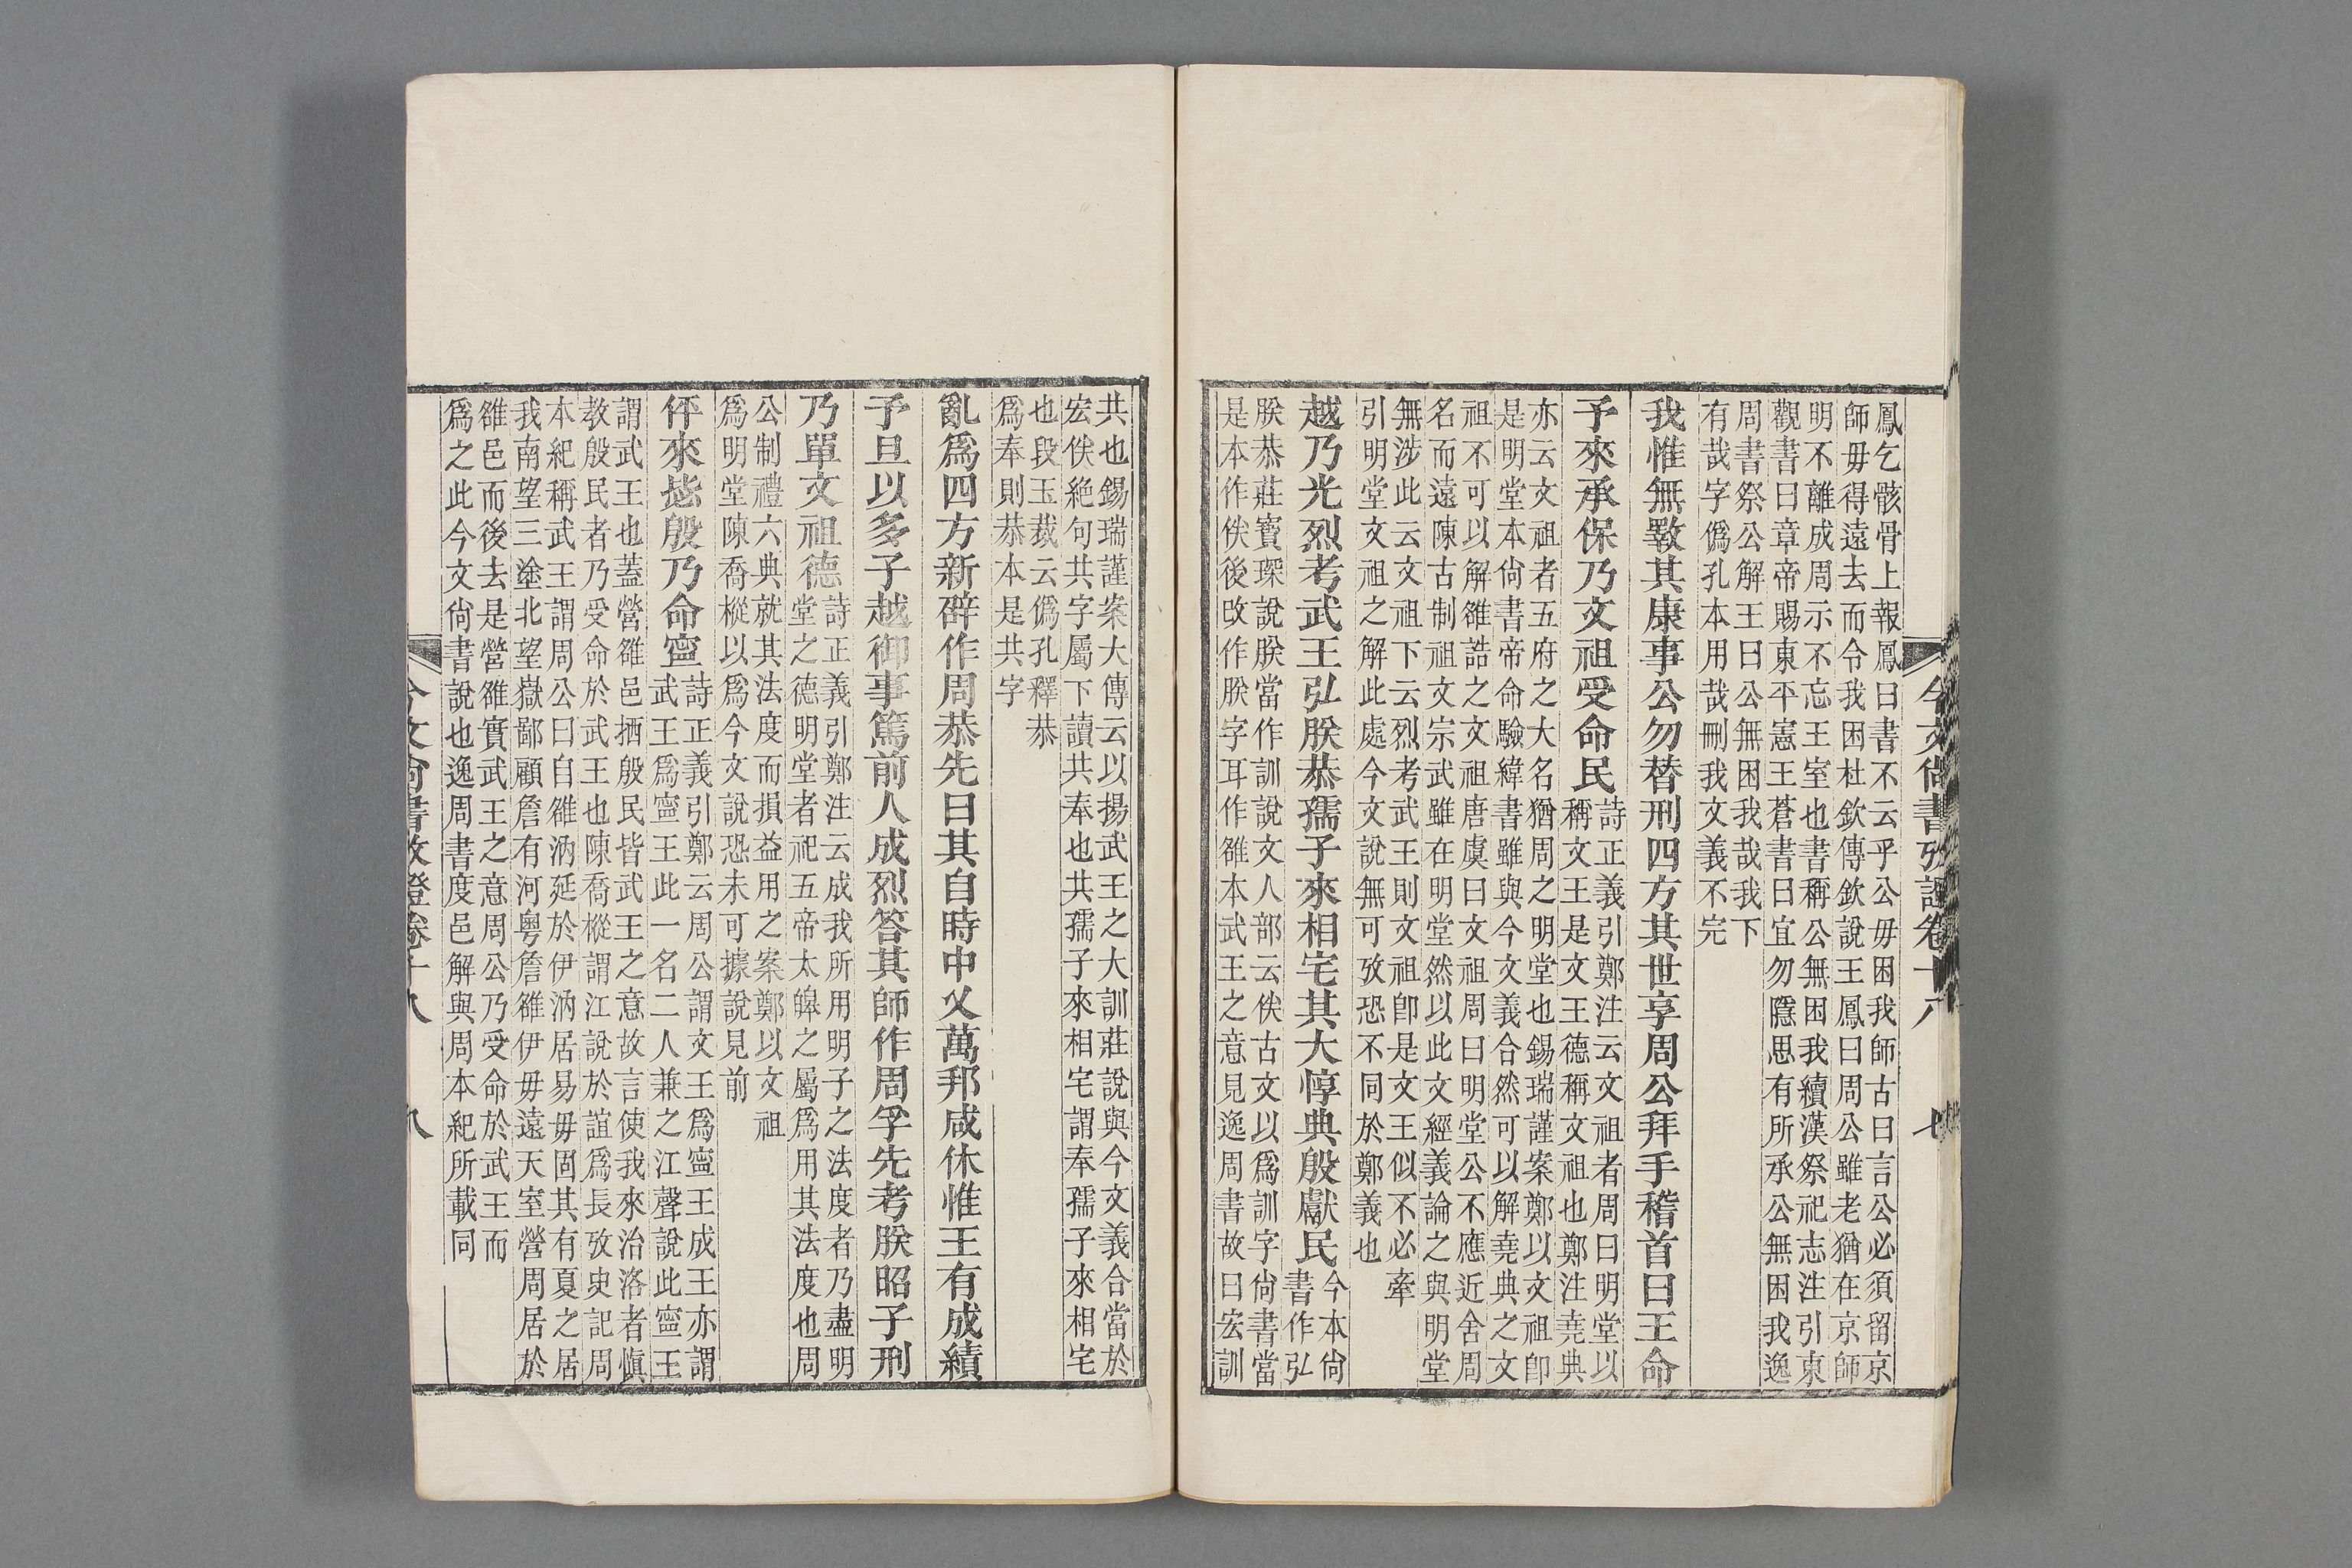 今文尙書攷證卷十八 七
鳳乞骸骨上報鳳曰書不云乎公毋困我師古曰言公必須留京
師毋得遠去而令我困杜欽傳欽說王鳳曰周公雖老猶在京師
明不離成周示不忘王室也書稱公無困我續漢祭祀志注引東
觀書曰章帝賜東平憲王蒼書曰宜勿隱思有所承公無困我逸
周書祭公解王曰公無困我哉我下
有哉字僞孔本用哉刪我文義不完
我惟無斁其康事公勿替刑四方其世享周公拜手稽首曰王命
予來承保乃文祖受命民
詩正義引鄭注云文祖者周曰明堂以
稱文王是文王德稱文祖也鄭注堯典
亦云文祖者五府之大名猶周之明堂也錫瑞謹案鄭以文祖卽
是明堂本尙書帝命驗緯書雖與今文義合然可以解堯典之文
祖不可以解雒誥之文祖唐虞曰文祖周曰明堂公不應近舍周
名而遠陳古制祖文宗武雖在明堂然以此文經義論之與明堂
無涉此云文祖下云烈考武王則文祖卽是文王似不必牽
引明堂文祖之解此處今文說無可攷恐不同於鄭義也
越乃光烈考武王弘朕恭孺子來相宅其大惇典殷獻民
今本尙
書作弘
朕恭莊寶琛說朕當作訓說文人部云佚古文以爲訓字尙書當
是本作佚後改作朕字耳作雒本武王之意見逸周書故曰宏訓
共也錫瑞謹案大傳云以揚武王之大訓莊說與今文義合當於
宏佚絕句共字屬下讀共奉也共孺子來相宅謂奉孺子來相宅
也段玉裁云僞孔釋恭
爲奉則恭本是共字
亂爲四方新辟作周恭先曰其自時中乂萬邦咸休惟王有成績
予旦以多子越御事篤前人成烈答其師作周孚先考朕昭子刑
乃單文祖德
詩正義引鄭注云成我所用明子之法度者乃盡明
堂之德明堂者祀五帝太皞之屬爲用其法度也周
公制禮六典就其法度而損益用之案鄭以文祖
爲明堂陳喬樅以爲今文說恐未可據說見前
伻來毖殷乃命寧
詩正義引鄭云周公謂文王爲寧王成王亦謂
武王爲寧王此一名二人兼之江聲說此寧王
謂武王也蓋營雒邑栖殷民皆武王之意故言使我來治洛者愼
教殷民者乃受命於武王也陳喬樅謂江說於誼爲長攷史記周
本紀稱武王謂周公曰自雒汭延於伊汭居易毋固其有夏之居
我南望三塗北望嶽鄙顧詹有河粵詹雒伊毋遠天室營周居於
雒邑而後去是營雒實武王之意周公乃受命於武王而
爲之此今文尙書說也逸周書度邑解與周本紀所載同
今文尙書攷證卷十八 八